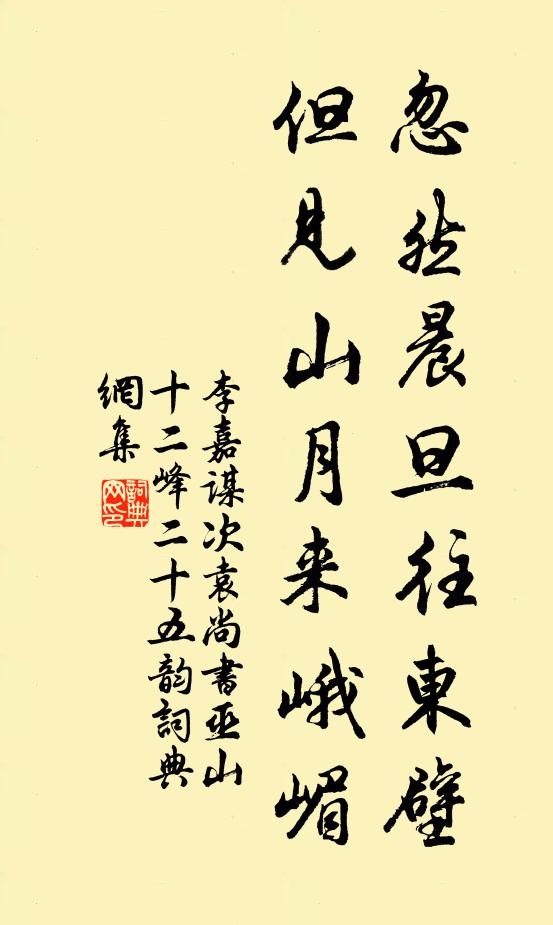 忽然晨旦往東壁
但見山月来峨嵋
李嘉謀次袁尚書巫山
十二峰二十五韵詞典
網集
詞典
网印